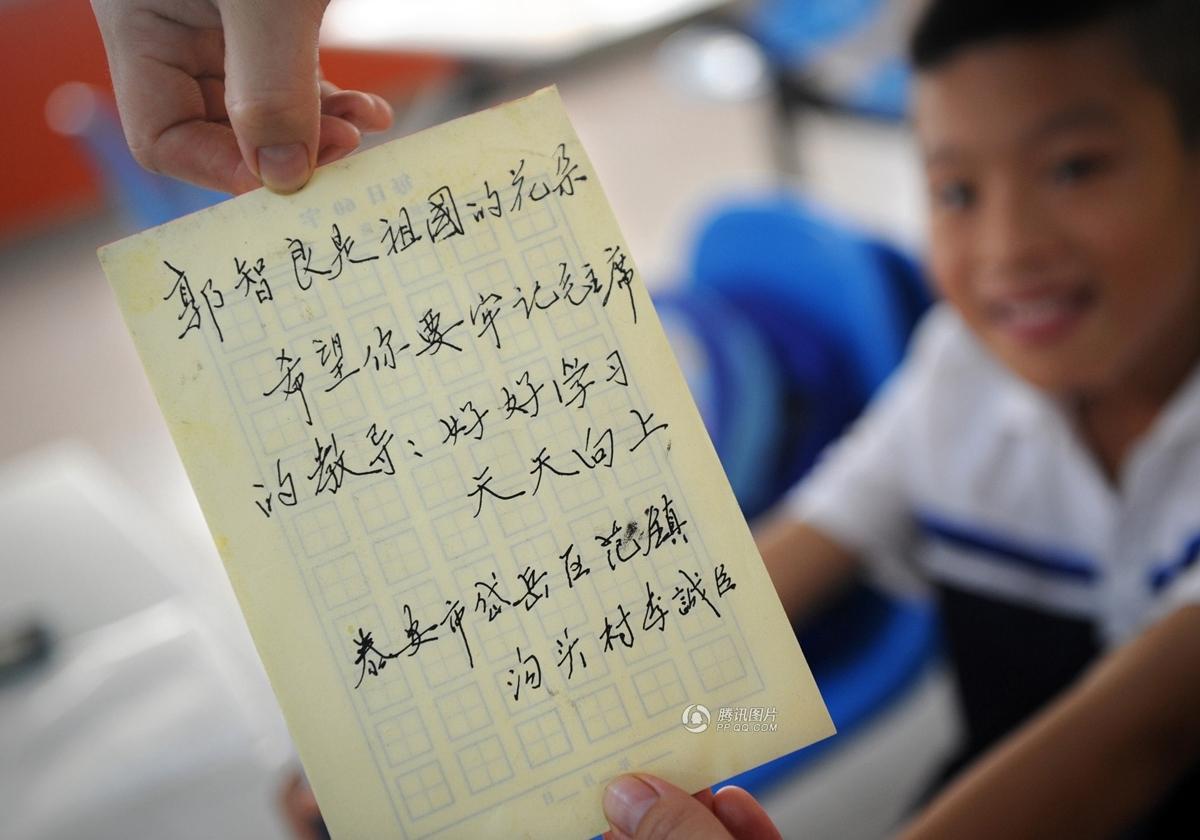 郭智良是祖國的花朵
希望你要牢记毛主席
的教导：好好学习
天天向上
泰安市岱岳区范鎮
沟头村李誠臣
每日60字
腾讯图片
PP.QQ.COM